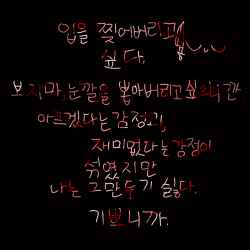 입을 찢어버리고
싶다.
보지마, 눈깔을 뽑아버리고싶으니깐
아프겠다는감정고,
재미없다는감정이
섞였지만
나는 그만두기 싫다.
기쁘니까.